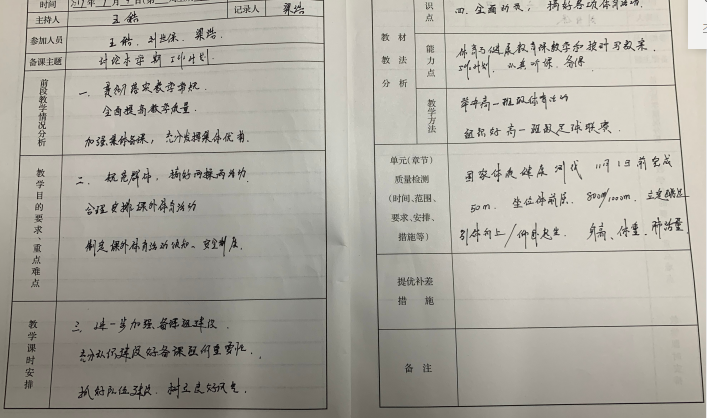 时间
主持人 王
记录人 梁浩
参加人员 王 刘 梁浩
备课主题 讨论本学期工作计划
前段教学情况分析
一、贯彻落实教学常规
全面提高教学质量
加强集体备课，充分发挥集体优
教学目的要求、重点难点
二、规范群体，搞好两操两活动
合理安排课外体育活动
制定课外体育活动 安全制度
教学课时安排
三、进一步加强备课组建设
充分认识建设好备课组的重要性
抓好队伍建设，树立良好
识点
四、全面 搞好各项体育活动
教材教法分析
能力点
体育与健康教育课教学
工作计划，认真听课、备课
教学方法
高一班级体育活动
组织好高一班级足球联赛
单元(章节)
质量检测
(时间、范围、
要求、安排、
措施等)
国家体质健康测试 11月1日前完成
50m、坐位体前屈、800m/1000m、立定跳远
引体向上/仰卧起坐、身高、体重、肺活量
提优补差
措施
备注